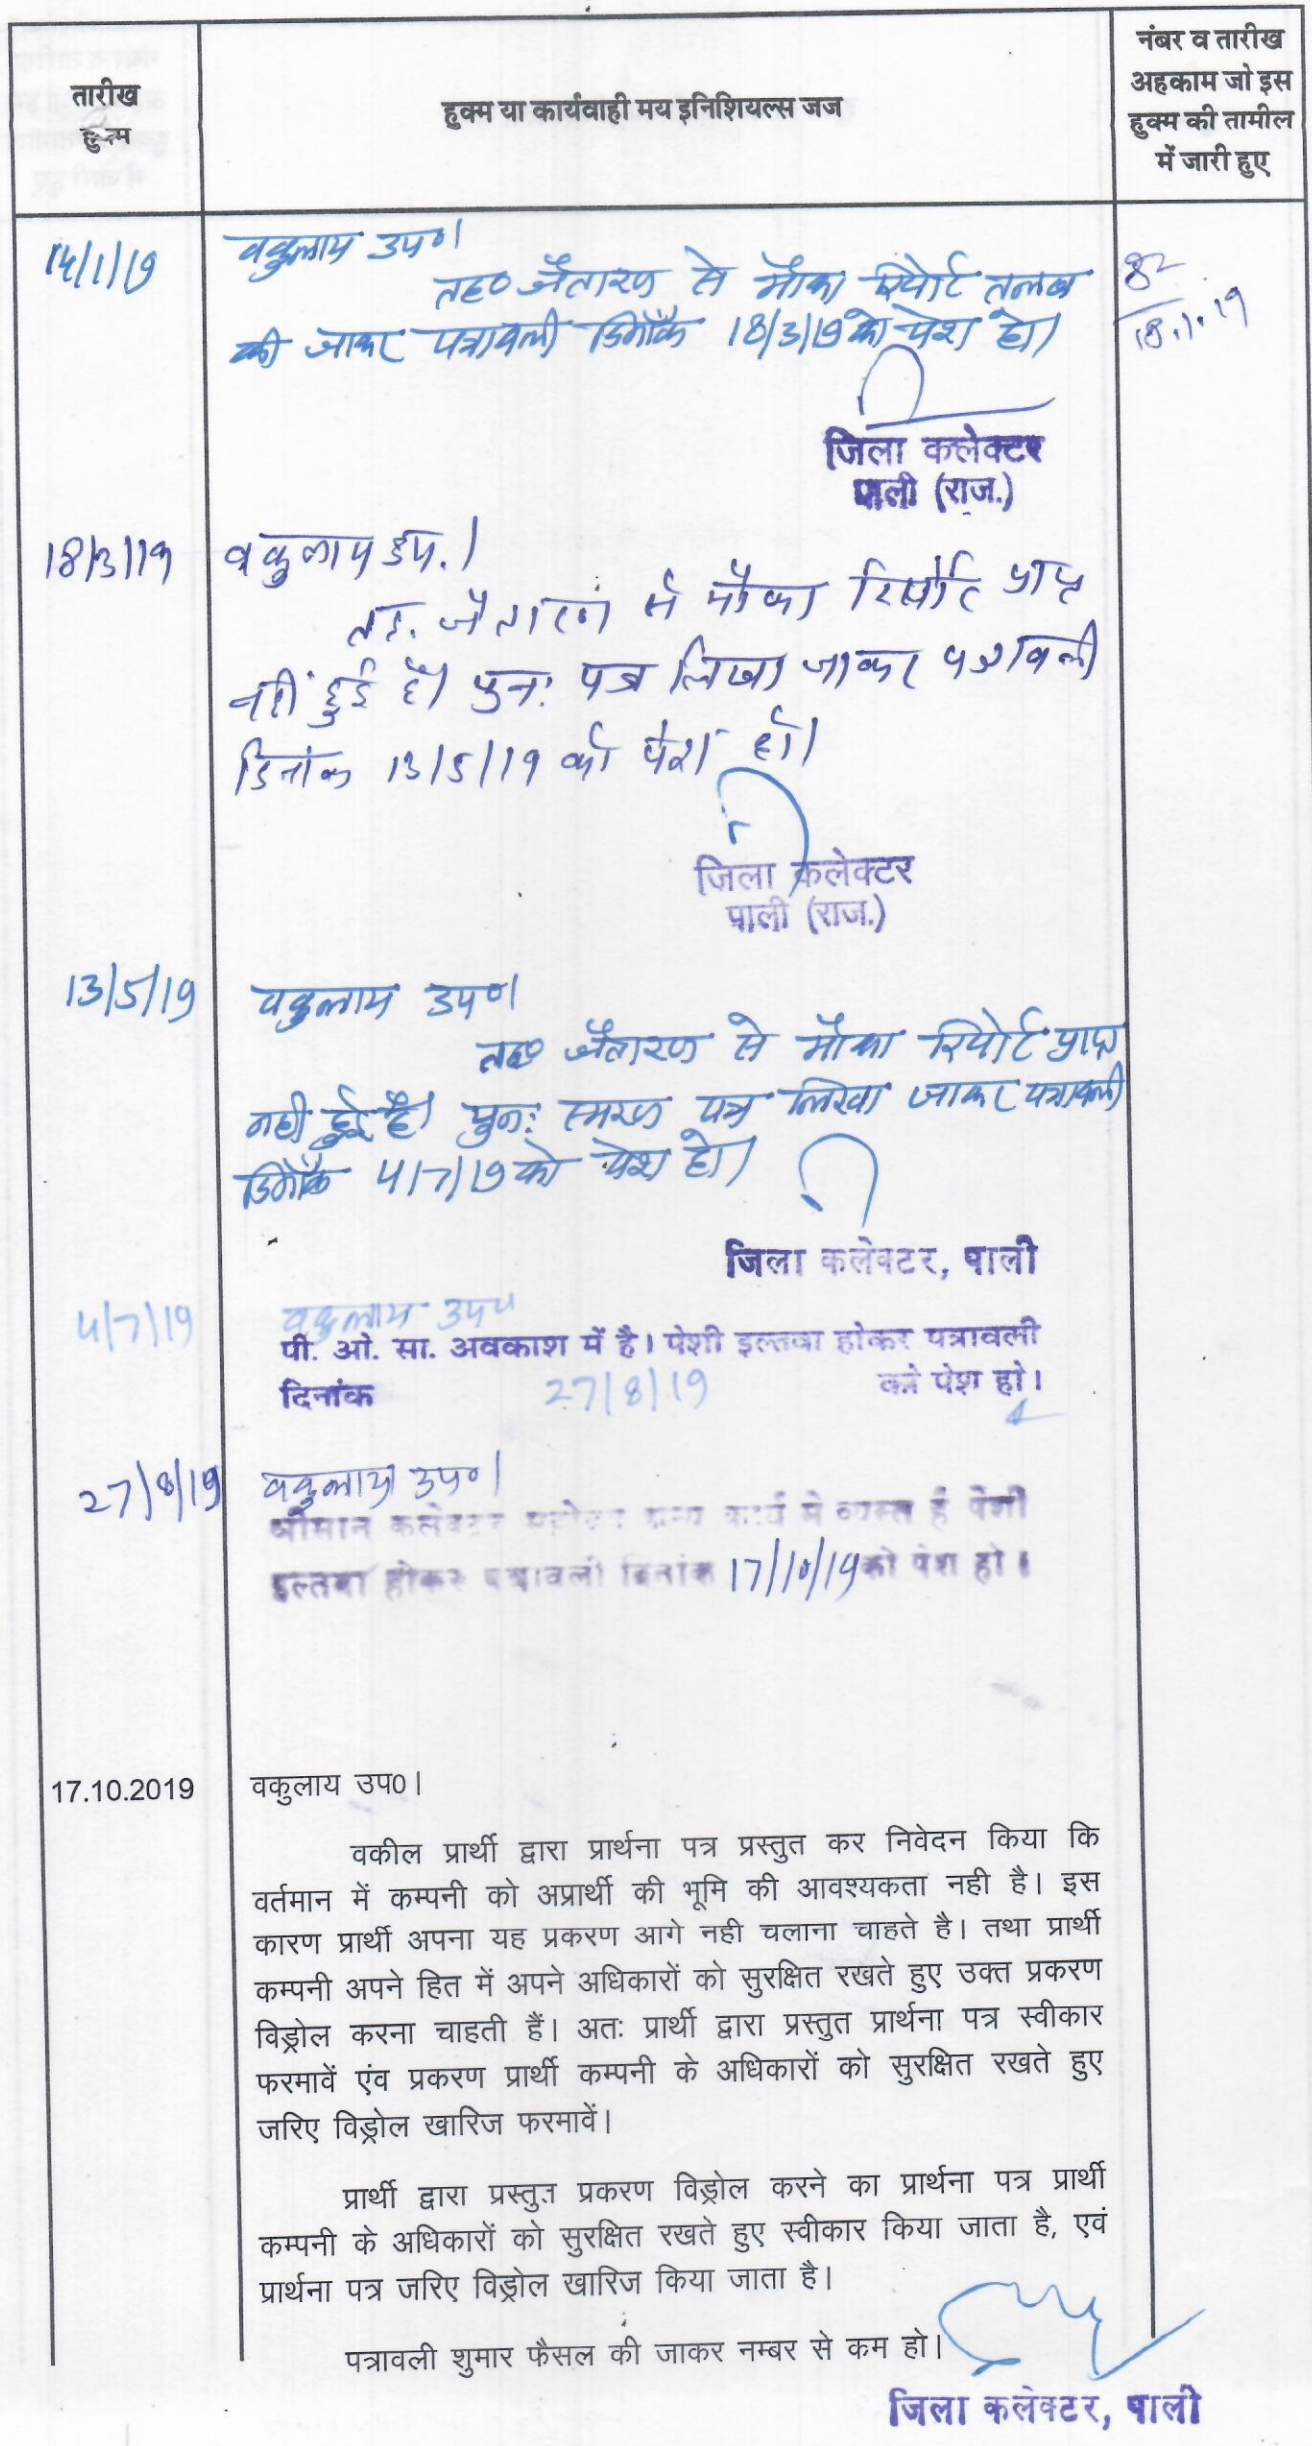 तारीख
हुक्म
हुक्म या कार्यवाही मय इनिशियल्स जज
नंबर व तारीख
अहकाम जो इस
हुक्म की तामील
में जारी हुए
14/1/19
वकुलाय उप०।
तह० जैतारण से मौका रिपोर्ट तलब
की जाकर पत्रावली दिनांक 18/3/19 को पेश हो।
82
18.1.19
जिला कलेक्टर
पाली (राज.)
18/3/19
वकुलाय उप.।
तह. जैतारण से मौका रिपोर्ट प्राप्त
नहीं हुई है। पुनः पत्र लिखा जाकर पत्रावली
दिनांक 13/5/19 को पेश हो।
जिला कलेक्टर
पाली (राज.)
13/5/19
वकुलाय उप०।
तह० जैतारण से मौका रिपोर्ट प्राप्त
नही हुई है। पुनः स्मरण पत्र लिखा जाकर पत्रावली
दिनांक 4/7/19 को पेश हो।
जिला कलेक्टर, पाली
4/7/19
वकुलाय उप०
पी. ओ. सा. अवकाश में है। पेशी इल्तवा होकर पत्रावली
दिनांक 27/8/19 को पेश हो।
27/8/19
वकुलाय उप०।
श्रीमान कलेक्टर महोदय अन्य कार्य मे व्यस्त है पेशी
इल्तवा होकर पत्रावली दिनांक 17/10/19 को पेश हो।
17.10.2019
वकुलाय उप0।
वकील प्रार्थी द्वारा प्रार्थना पत्र प्रस्तुत कर निवेदन किया कि
वर्तमान में कम्पनी को अप्रार्थी की भूमि की आवश्यकता नही है। इस
कारण प्रार्थी अपना यह प्रकरण आगे नही चलाना चाहते है। तथा प्रार्थी
कम्पनी अपने हित में अपने अधिकारों को सुरक्षित रखते हुए उक्त प्रकरण
विड्रोल करना चाहती हैं। अतः प्रार्थी द्वारा प्रस्तुत प्रार्थना पत्र स्वीकार
फरमावें एंव प्रकरण प्रार्थी कम्पनी के अधिकारों को सुरक्षित रखते हुए
जरिए विड्रोल खारिज फरमावें।
प्रार्थी द्वारा प्रस्तुत प्रकरण विड्रोल करने का प्रार्थना पत्र प्रार्थी
कम्पनी के अधिकारों को सुरक्षित रखते हुए स्वीकार किया जाता है, एवं
प्रार्थना पत्र जरिए विड्रोल खारिज किया जाता है।
पत्रावली शुमार फैसल की जाकर नम्बर से कम हो।
जिला कलेक्टर, पाली